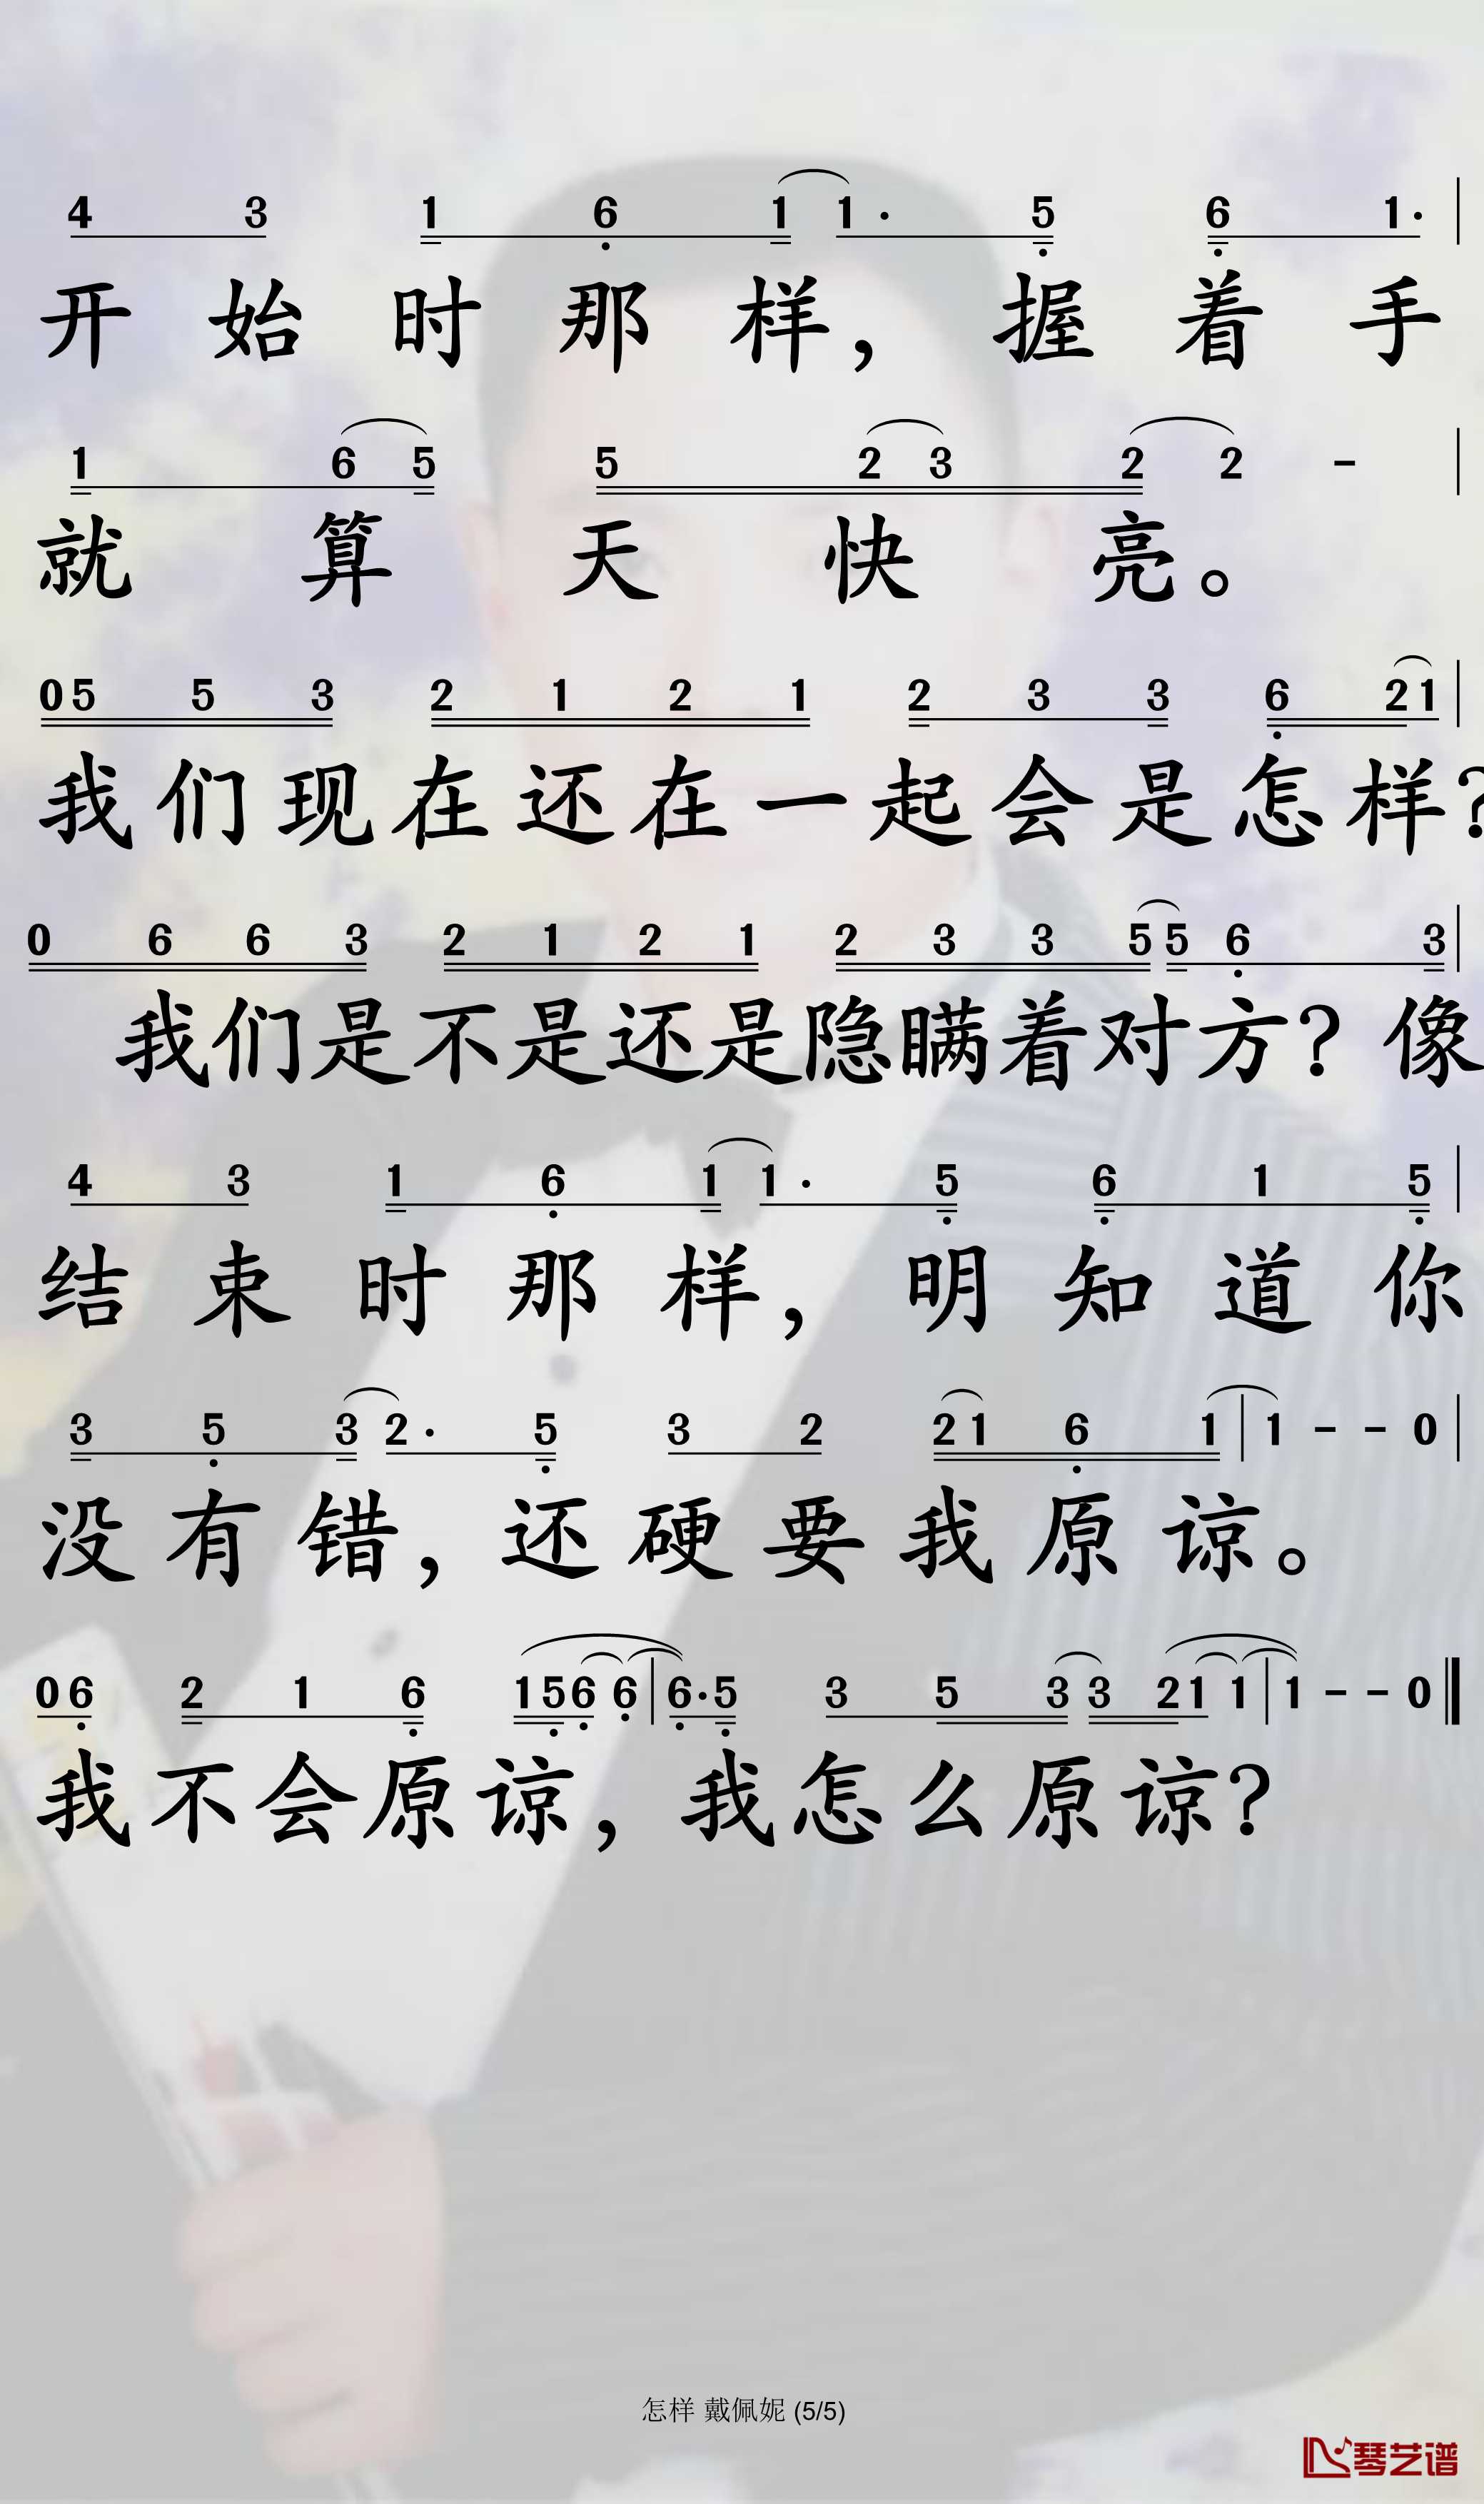 4 3 1 6 1 1· 5 6 1·
开始时那样，握着手
1 6 5 5 2 3 2 2 -
就算天快亮。
0 5 5 3 2 1 2 1 2 3 3 6 2 1
我们现在还在一起会是怎样?
0 6 6 3 2 1 2 1 2 3 3 5 5 6 3
我们是不是还是隐瞒着对方? 像
4 3 1 6 1 1· 5 6 1 5
结束时那样，明知道你
3 5 3 2· 5 3 2 2 1 6 1 | 1 - - 0
没有错，还硬要我原谅。
0 6 2 1 6 1 5 6 6 | 6· 5 3 5 3 3 2 1 1 | 1 - - 0
我不会原谅，我怎么原谅?
怎样 戴佩妮 (5/5)
琴艺谱